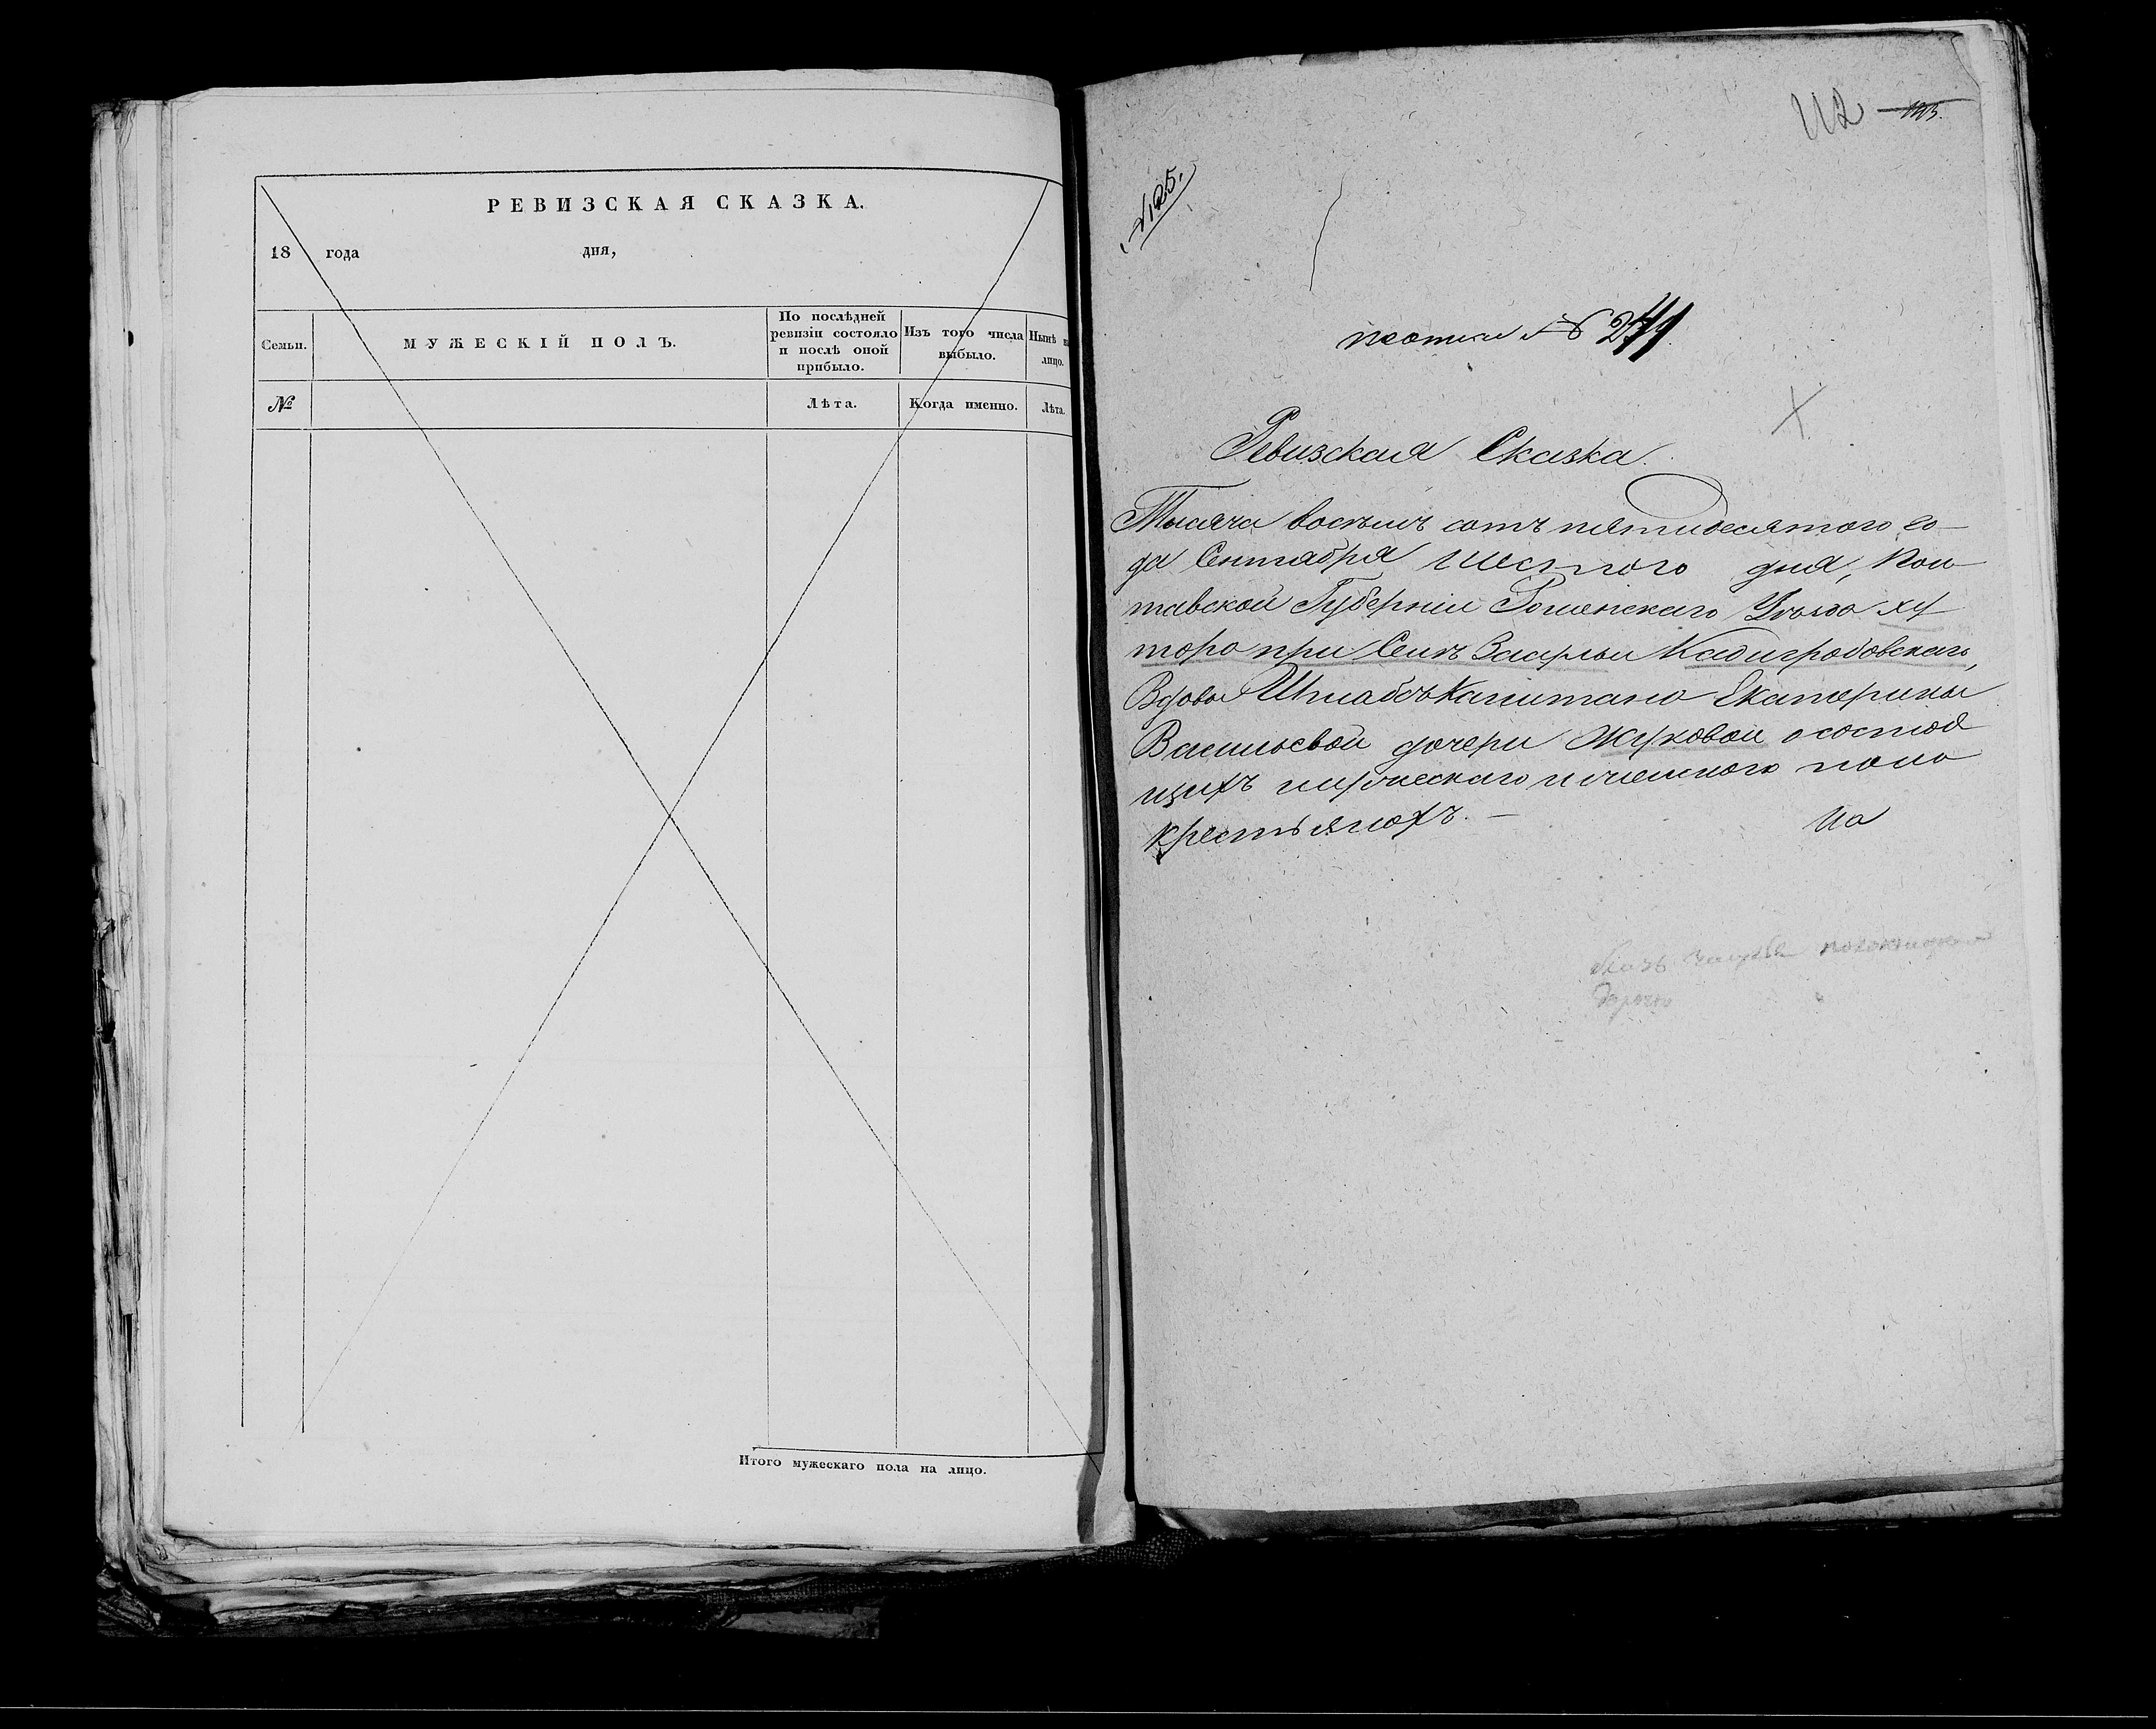 РЕВИЗСКАЯ СКАЗКА.
18 года дня,
Семьи. МУЖЕСКІЙ ПОЛЪ. По послѣдней ревизіи состояло и послѣ оной прибыло. Изъ того числа выбыло. Нынѣ н лицо.
№ Лѣта. Когда именно. Лѣта.
Итого мужескаго пола на лицо.
112 125.
№125.
по описи № 241
Ревизская Сказка.
Тысяча восемь сотъ пятидесятого го
да Сентября шестого дня, Пол
тавской Губерніи Роменскаго Уѣзда ху
тора при Селѣ
Вдовы Штабсъ Капитана Екатерины
Васильевой дочери Жуковой о состоя
щихъ мужескаго и женского пола
крестьянахъ. —
На